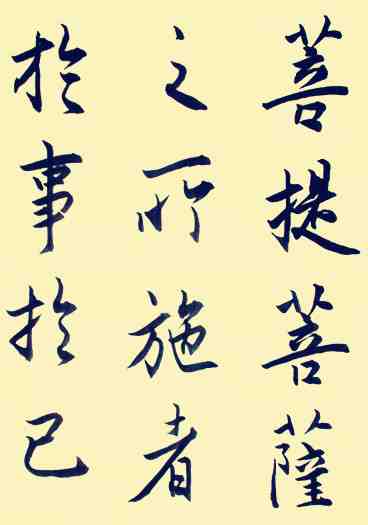 菩提菩薩
之所施者
於事於已